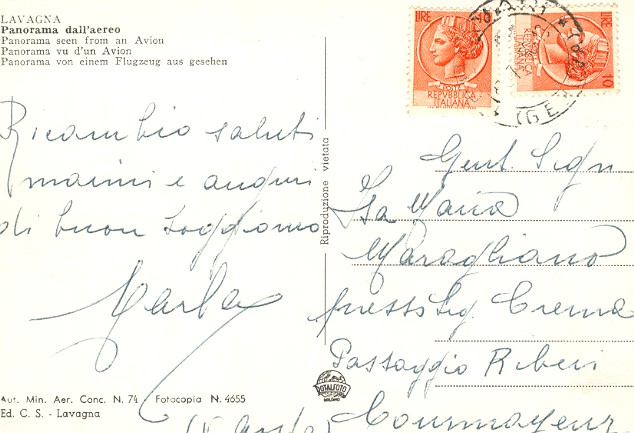 LAVAGNA
Panorama dall'aereo
Panorama seen from an Avion
Panorama vu d'un Avion
Panorama von einem Flugzeug aus gesehen
Ricambio saluti
marini e auguri
di buon soggiorno
Marla
Aut. Min. Aer. Conc. N. 74 Fotocopia N. 4655
Ed. C. S. - Lavagna
Riproduzione vietata
ROTALFOTO
MILANO
LIRE 10
POSTE
REPVBBLICA
ITALIANA
LIRE 10
POSTE
REPVBBLICA
ITALIANA
(GE
Gent. Sign
Isa Maria
Maragliano
presso Sig. Crema
Passaggio Riberi
Courmayeur
(V. Aosta)